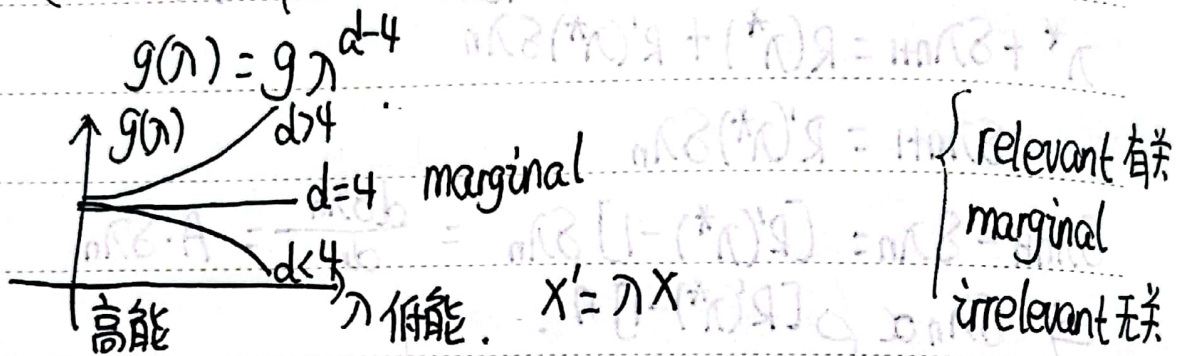 g(λ) = g λ^{d-4}
g(λ)
d>4
d=4 marginal
d<4
高能
λ 低能.
x' = λx
relevant 有关
marginal
irrelevant 无关